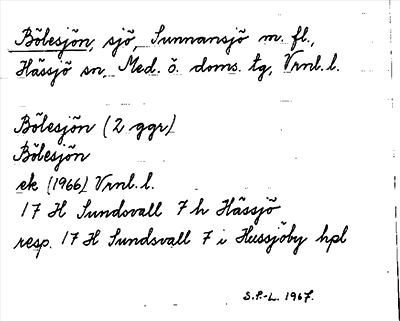 Bölesjön, sjö, Sunnansjö m. fl.,
Hässjö sn, Med. ö. doms. tg, Vrnl. l.
Bölesjön (2 ggr)
Bölesjön
ek (1966) Vrnl. l.
17 H Sundsvall 7 h Hässjö
resp. 17 H Sundsvall 7 i Hussjöby hpl
S.P.-L. 1967.